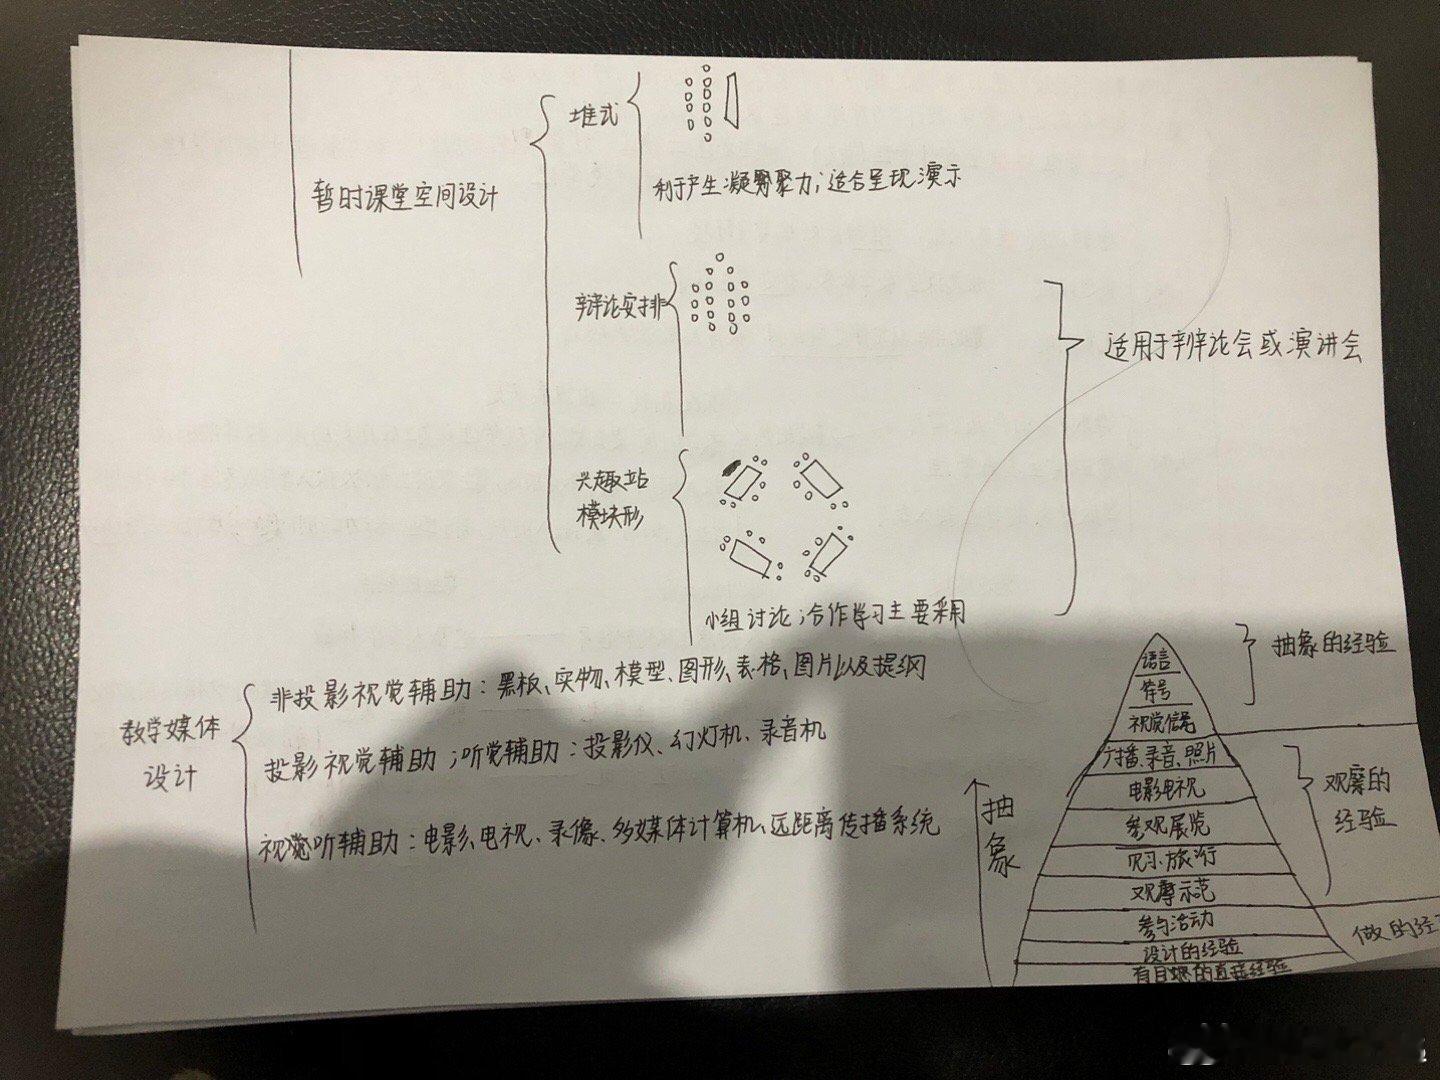 堆式
利于产生凝聚力;适合呈现演示
暂时课堂空间设计
辩论安排
适用于辩论会或演讲会
兴趣站
模块形
小组讨论;合作学习主要采用
教学媒体
设计
非投影视觉辅助:黑板、实物、模型、图形、表格、图片以及提纲
投影视觉辅助;听觉辅助:投影仪、幻灯机、录音机
视觉听辅助:电影、电视、录像、多媒体计算机、远距离传播系统
抽象
语言
符号
视觉信号
广播、录音、照片
电影电视
参观展览
见习·旅行
观摩示范
参与活动
设计的经验
有目的的直接经验
抽象的经验
观察的
经验
做的经